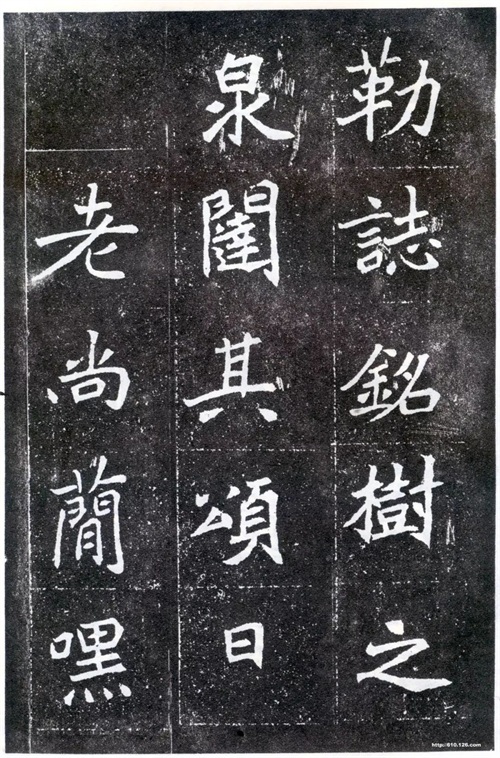 勒誌銘樹之
泉闥其頌曰
老尚蕑嘿
http://610.126.com